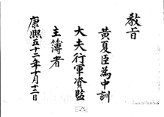 教旨
黄夏臣為中訓
大夫行軍資監
主簿者
康熙五十二年十月十二日